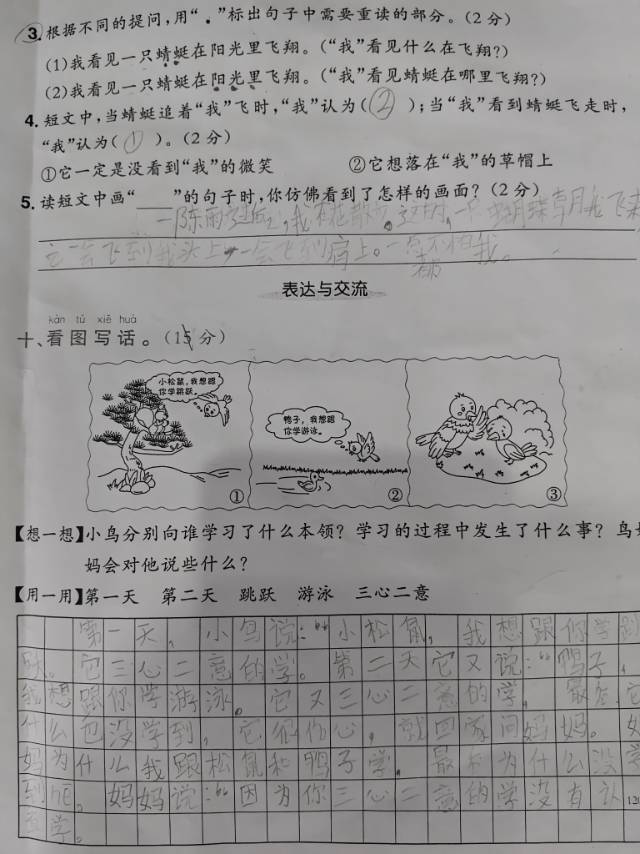 3.根据不同的提问,用“.”标出句子中需要重读的部分。(2分)
(1)我看见一只蜻蜓在阳光里飞翔。(“我”看见什么在飞翔?)
(2)我看见一只蜻蜓在阳光里飞翔。(“我”看见蜻蜓在哪里飞翔?)
4.短文中,当蜻蜓追着“我”飞时,“我”认为(②);当“我”看到蜻蜓飞走时,
“我”认为(①)。(2分)
①它一定是没看到“我”的微笑 ②它想落在“我”的草帽上
5.读短文中画“____”的句子时,你仿佛看到了怎样的画面?(2分)
一阵雨过后,我在散步,这时,一只
它一会飞到我头上,一会飞到肩上。一点不怕我。
表达与交流
kàn tú xiě huà
十、看图写话。(15分)
小松鼠,我想跟
你学跳跃。
鸭子,我想跟
你学游泳。
① ② ③
【想一想】小鸟分别向谁学习了什么本领?学习的过程中发生了什么事?鸟
妈会对他说些什么?
【用一用】第一天 第二天 跳跃 游泳 三心二意
第一天,小鸟说:“小松鼠,我想跟你学跳
跃。它三心二意的学。第二天它又说:“鸭子,
我想跟你学游泳。它又三心二意的学,最后,它
什么也没学到,它很伤心,就回家问妈妈。
妈为什么我跟松鼠和鸭子学,最后为什么没学
到呢。妈妈说:“因为你三心二意的学没有认 120
真学。